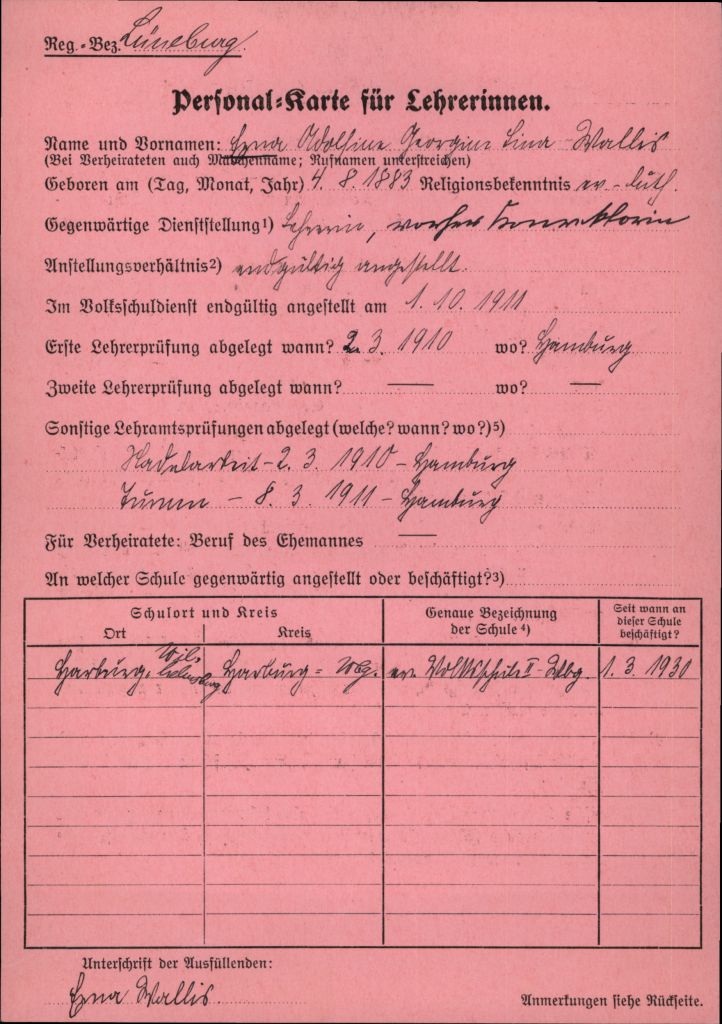 Reg.-Bez. Lüneburg.
Personal-Karte für Lehrerinnen.
Name und Vornamen: Erna Adolfine Georgine Lina Wallis
(Bei Verheirateten auch Mädchenname; Rufnamen unterstreichen)
Geboren am (Tag, Monat, Jahr) 4. 8. 1883 Religionsbekenntnis ev.-luth.
Gegenwärtige Dienststellung¹) Lehrerin, vorher Konrektorin
Anstellungsverhältnis²) endgültig angestellt.
Im Volksschuldienst endgültig angestellt am 1. 10. 1911
Erste Lehrerprüfung abgelegt wann? 2. 3. 1910 wo? Hamburg
Zweite Lehrerprüfung abgelegt wann? — wo? —
Sonstige Lehramtsprüfungen abgelegt (welche? wann? wo?)⁵)
Nadelarbeit - 2. 3. 1910 - Hamburg
Turnen - 8. 3. 1911 - Hamburg
Für Verheiratete: Beruf des Ehemannes —
An welcher Schule gegenwärtig angestellt oder beschäftigt?³)
Schulort und Kreis
Ort Kreis
Genaue Bezeichnung
der Schule⁴)
Seit wann an
dieser Schule
beschäftigt?
Harburg-Wilhelmsburg Harburg-Wbg. ev. Volksschule II-Wbg. 1. 3. 1930
Unterschrift der Ausfüllenden:
Erna Wallis.
Anmerkungen siehe Rückseite.